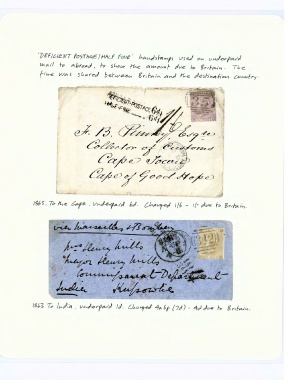 'DEFICIENT POSTAGE/HALF FINE' handstamps used on underpaid
mail to abroad, to show the amount due to Britain. The
fine was shared between Britain and the destination country.
DEFICIENT POSTAGE
HALF FINE
1/-
F. B. Esqre
Collector of Customs
Cape Town
Cape of Good Hope
1865. To the Cape. Underpaid 6d. Charged 1/6 - 1/- due to Britain.
via Marseilles & Bombay
Mrs Henry Mills
Major Henry Mills
Commissariat Department
India
1863. To India. Underpaid 1d. Charged - 4d due to Britain.